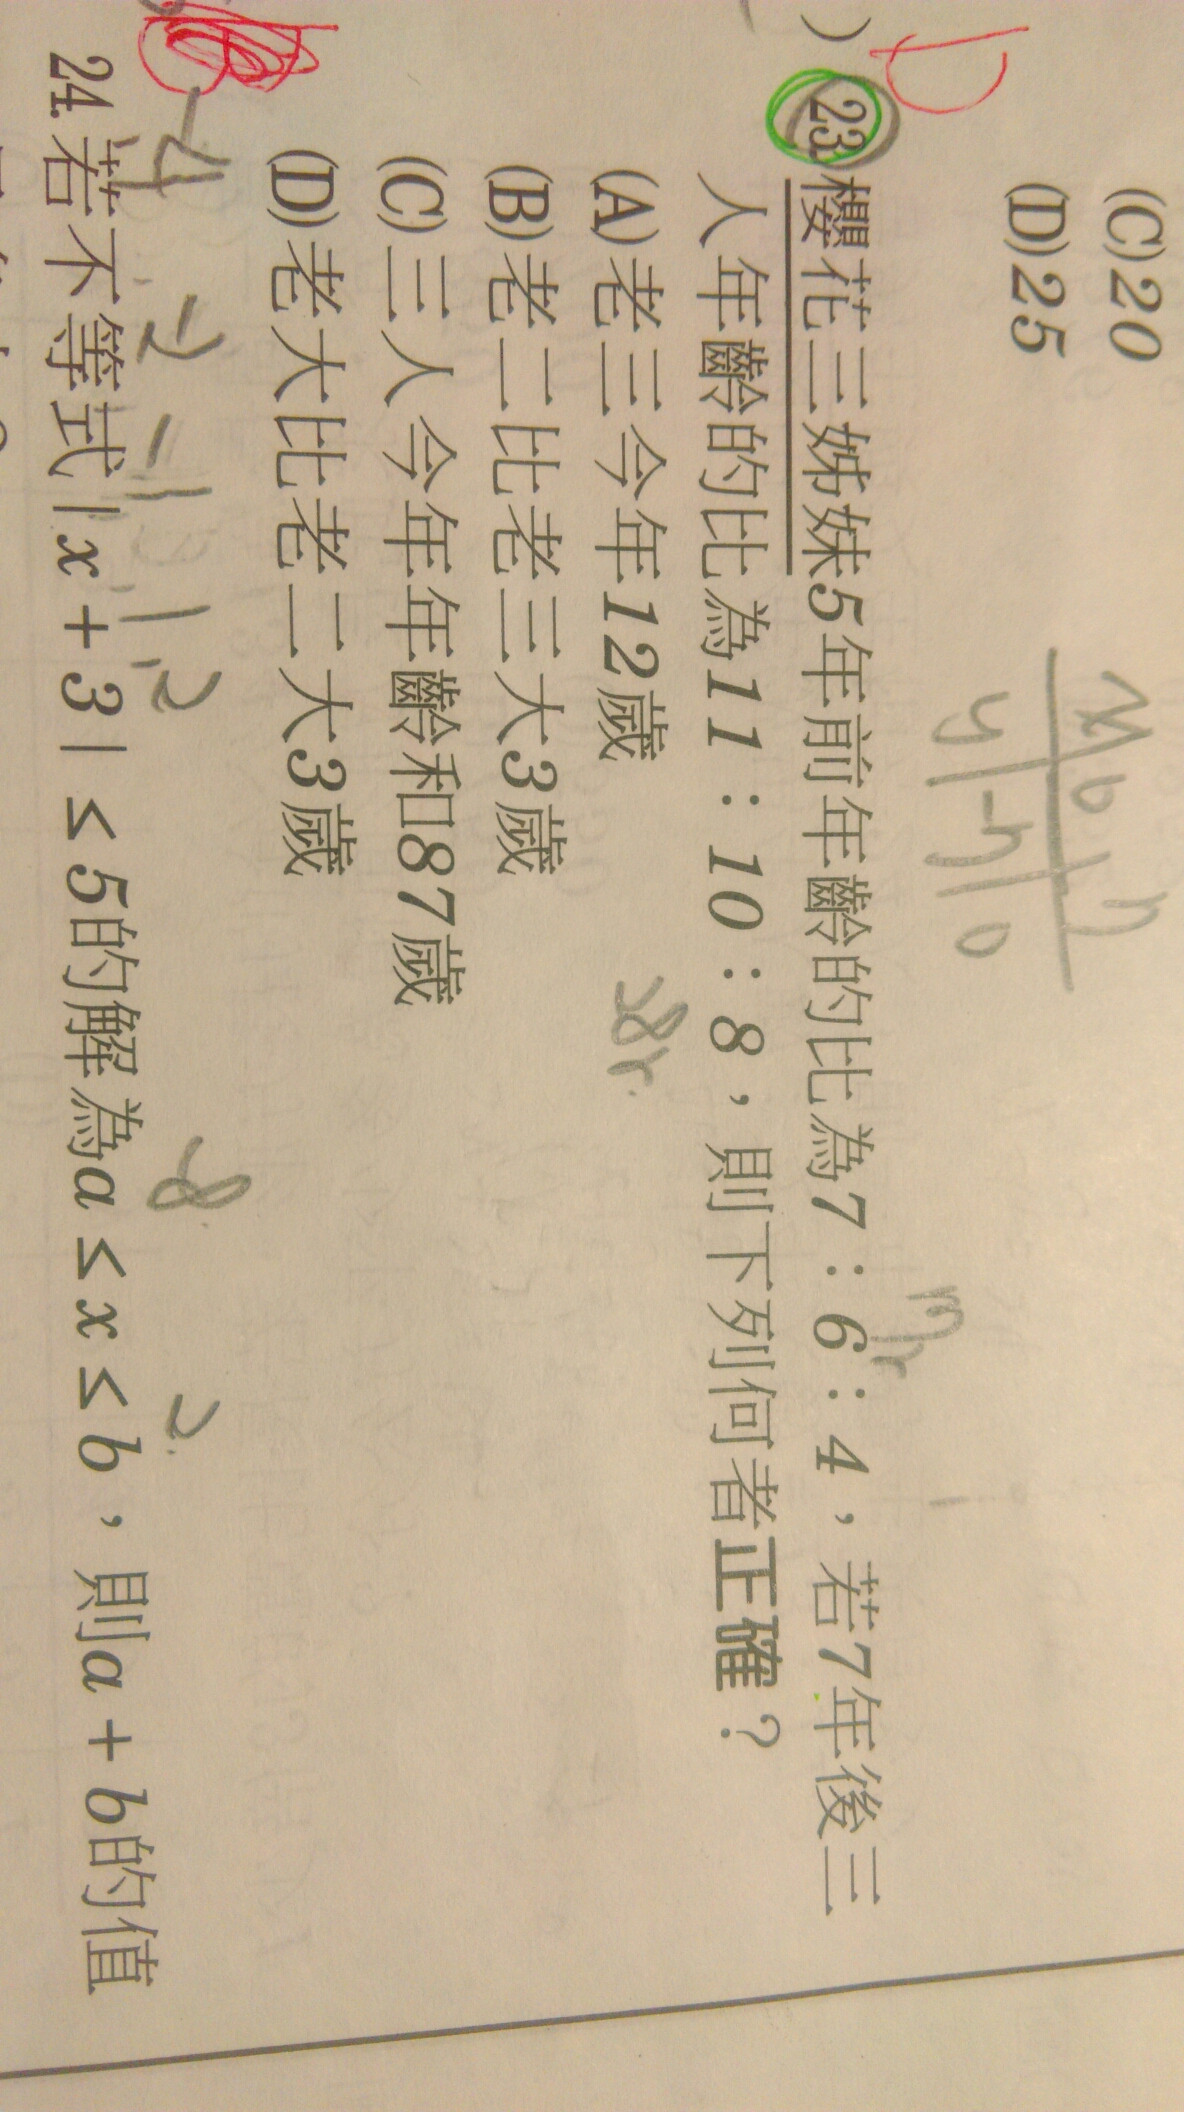 (C)20
(D)25
x 6
y
0
D
)23.櫻花三姊妹5年前年齡的比為7：6：4，若7年後三
人年齡的比為11：10：8，則下列何者正確？
(A)老三今年12歲
(B)老二比老三大3歲
(C)三人今年年齡和87歲
(D)老大比老二大3歲
-4 -2 -1 1 2
-8 2
24.若不等式|x+3|≤5的解為a≤x≤b，則a+b的值